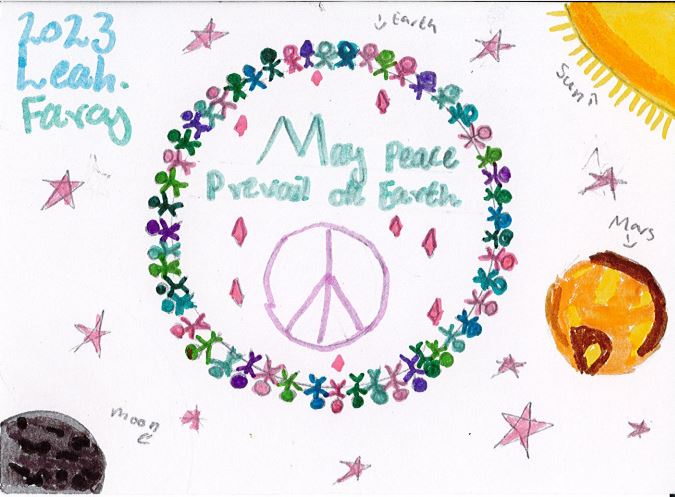 2023
Leah.
Faray
Earth
Sun
May Peace
Prevail on Earth
Mars
moon